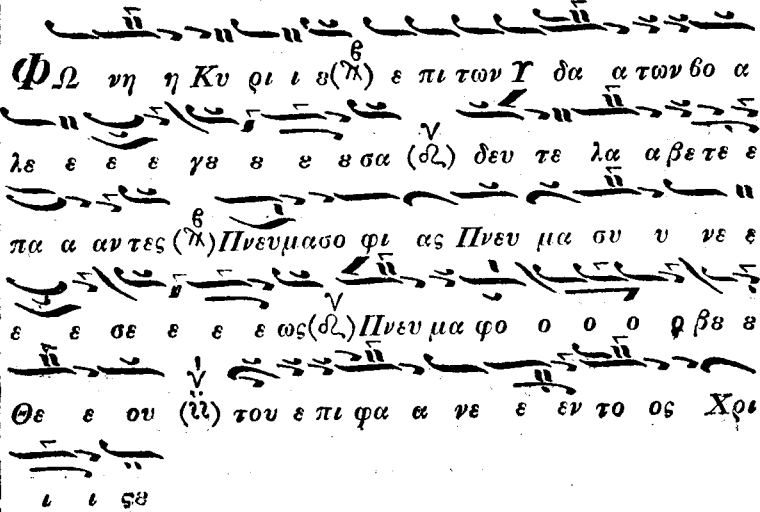 ΦΩ νη η Κυ ρι ι ȣ ε πι των Υ δα α των βο α
λε ε ε ε γȣ ȣ ȣ ȣ σα δευ τε λα α βε τε ε
πα α αν τες Πνευμασο φι ας Πνευ μα συ υ νε ε
ε ε σε ε ε ε ως Πνευ μα φο ο ο ο ο βȣ ȣ
Θε ε ου του ε πι φα α νε ε εν το ος Χρι
ι ι ςȣ